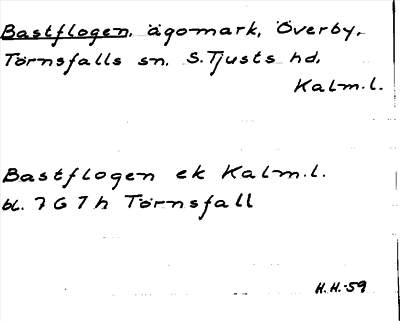 Bastflogen, ägomark, Överby,
Törnsfalls sn. S. Tjusts hd.
Kalm. l.
Bastflogen ek Kalm. l.
bl. 7 G 7 h Törnsfall
H.H.-59